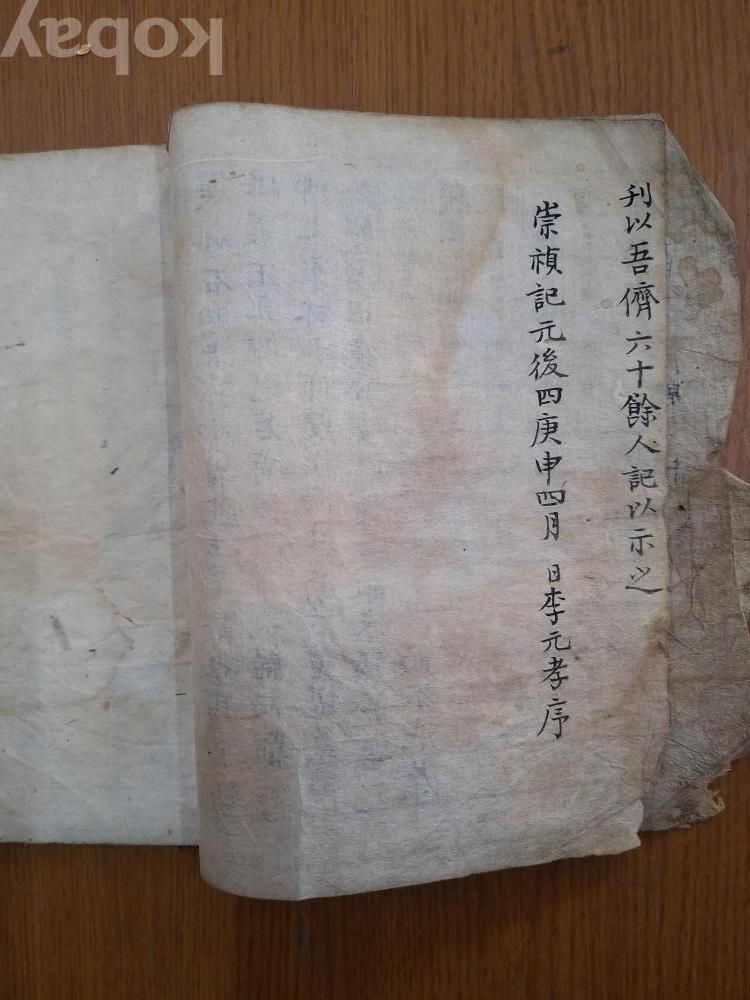 刋以吾儕六十餘人記以示之
崇禎記元後四庚申四月 日李元孝序
kobay